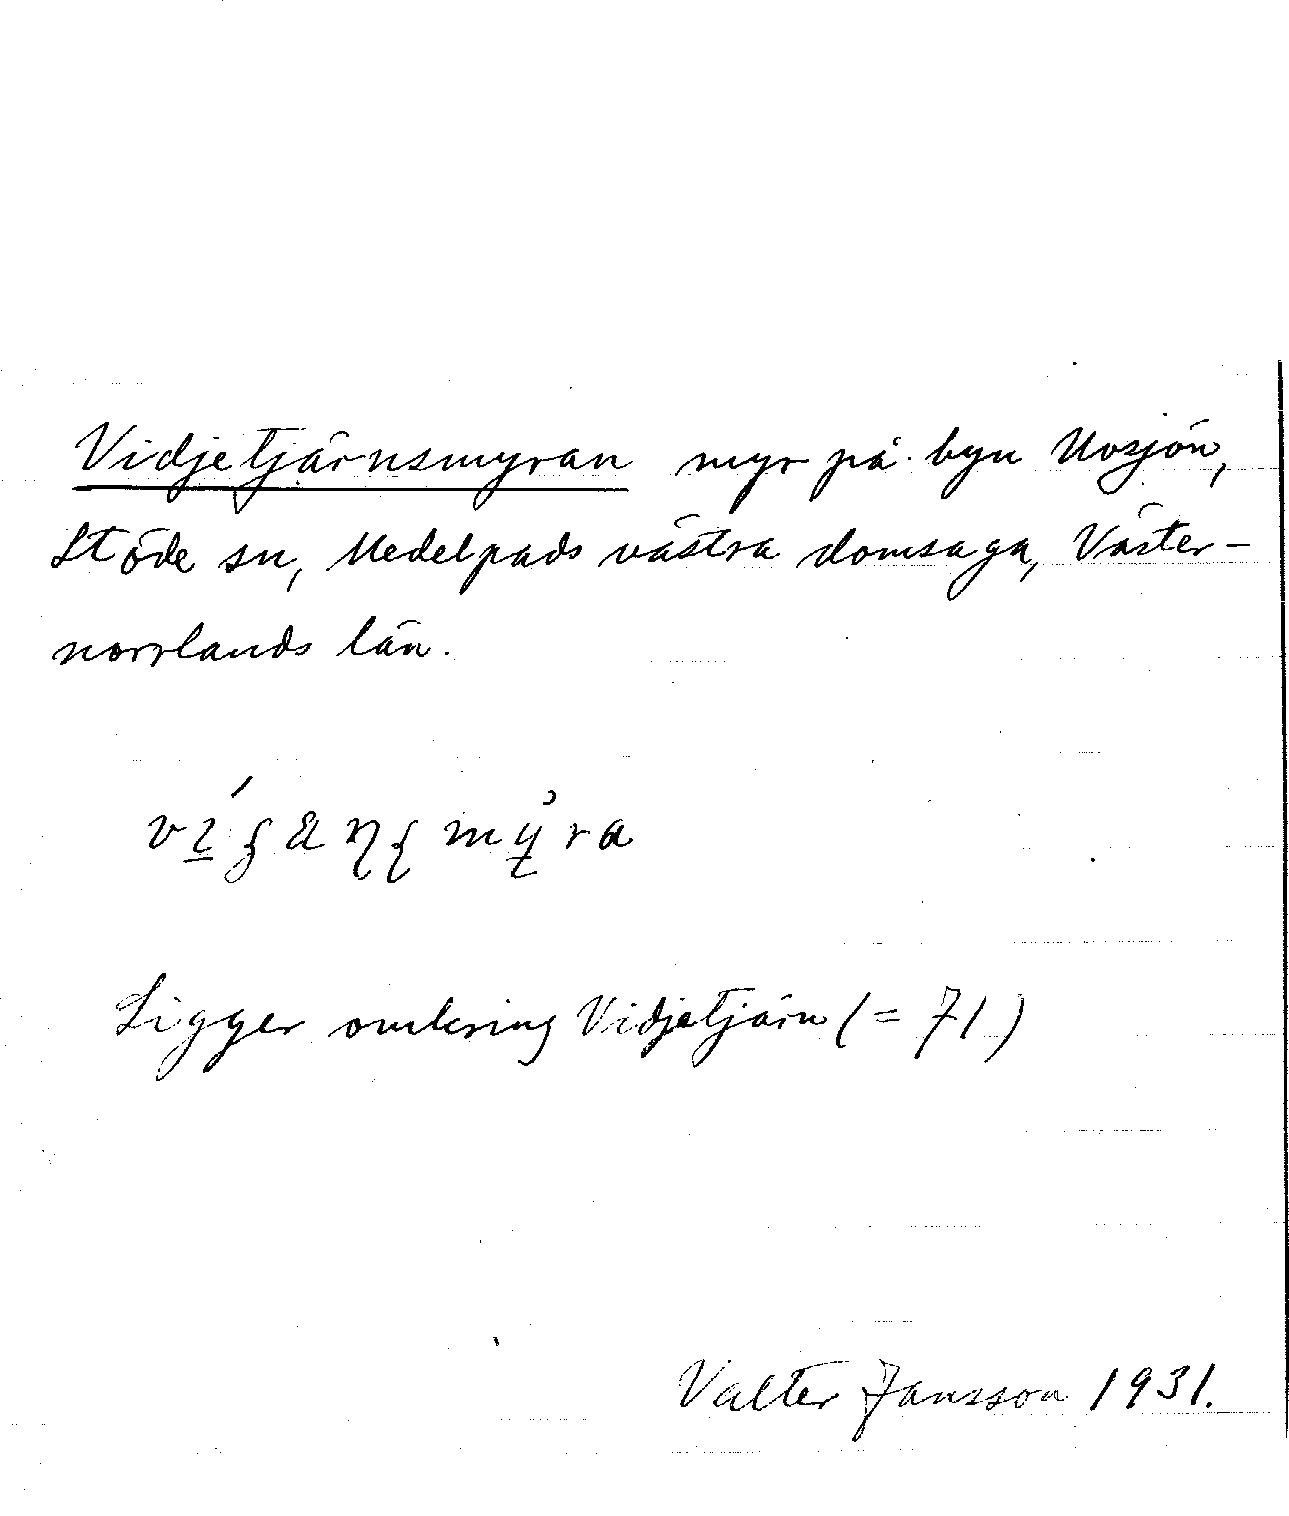 Vidjetjärnsmyran myr på byn Usjön,
Stöde sn, Medelpads västra domsaga, Väster-
norrlands län.
Ligger omkring Vidjetjärn (= 71)
Valter Jansson 1931.